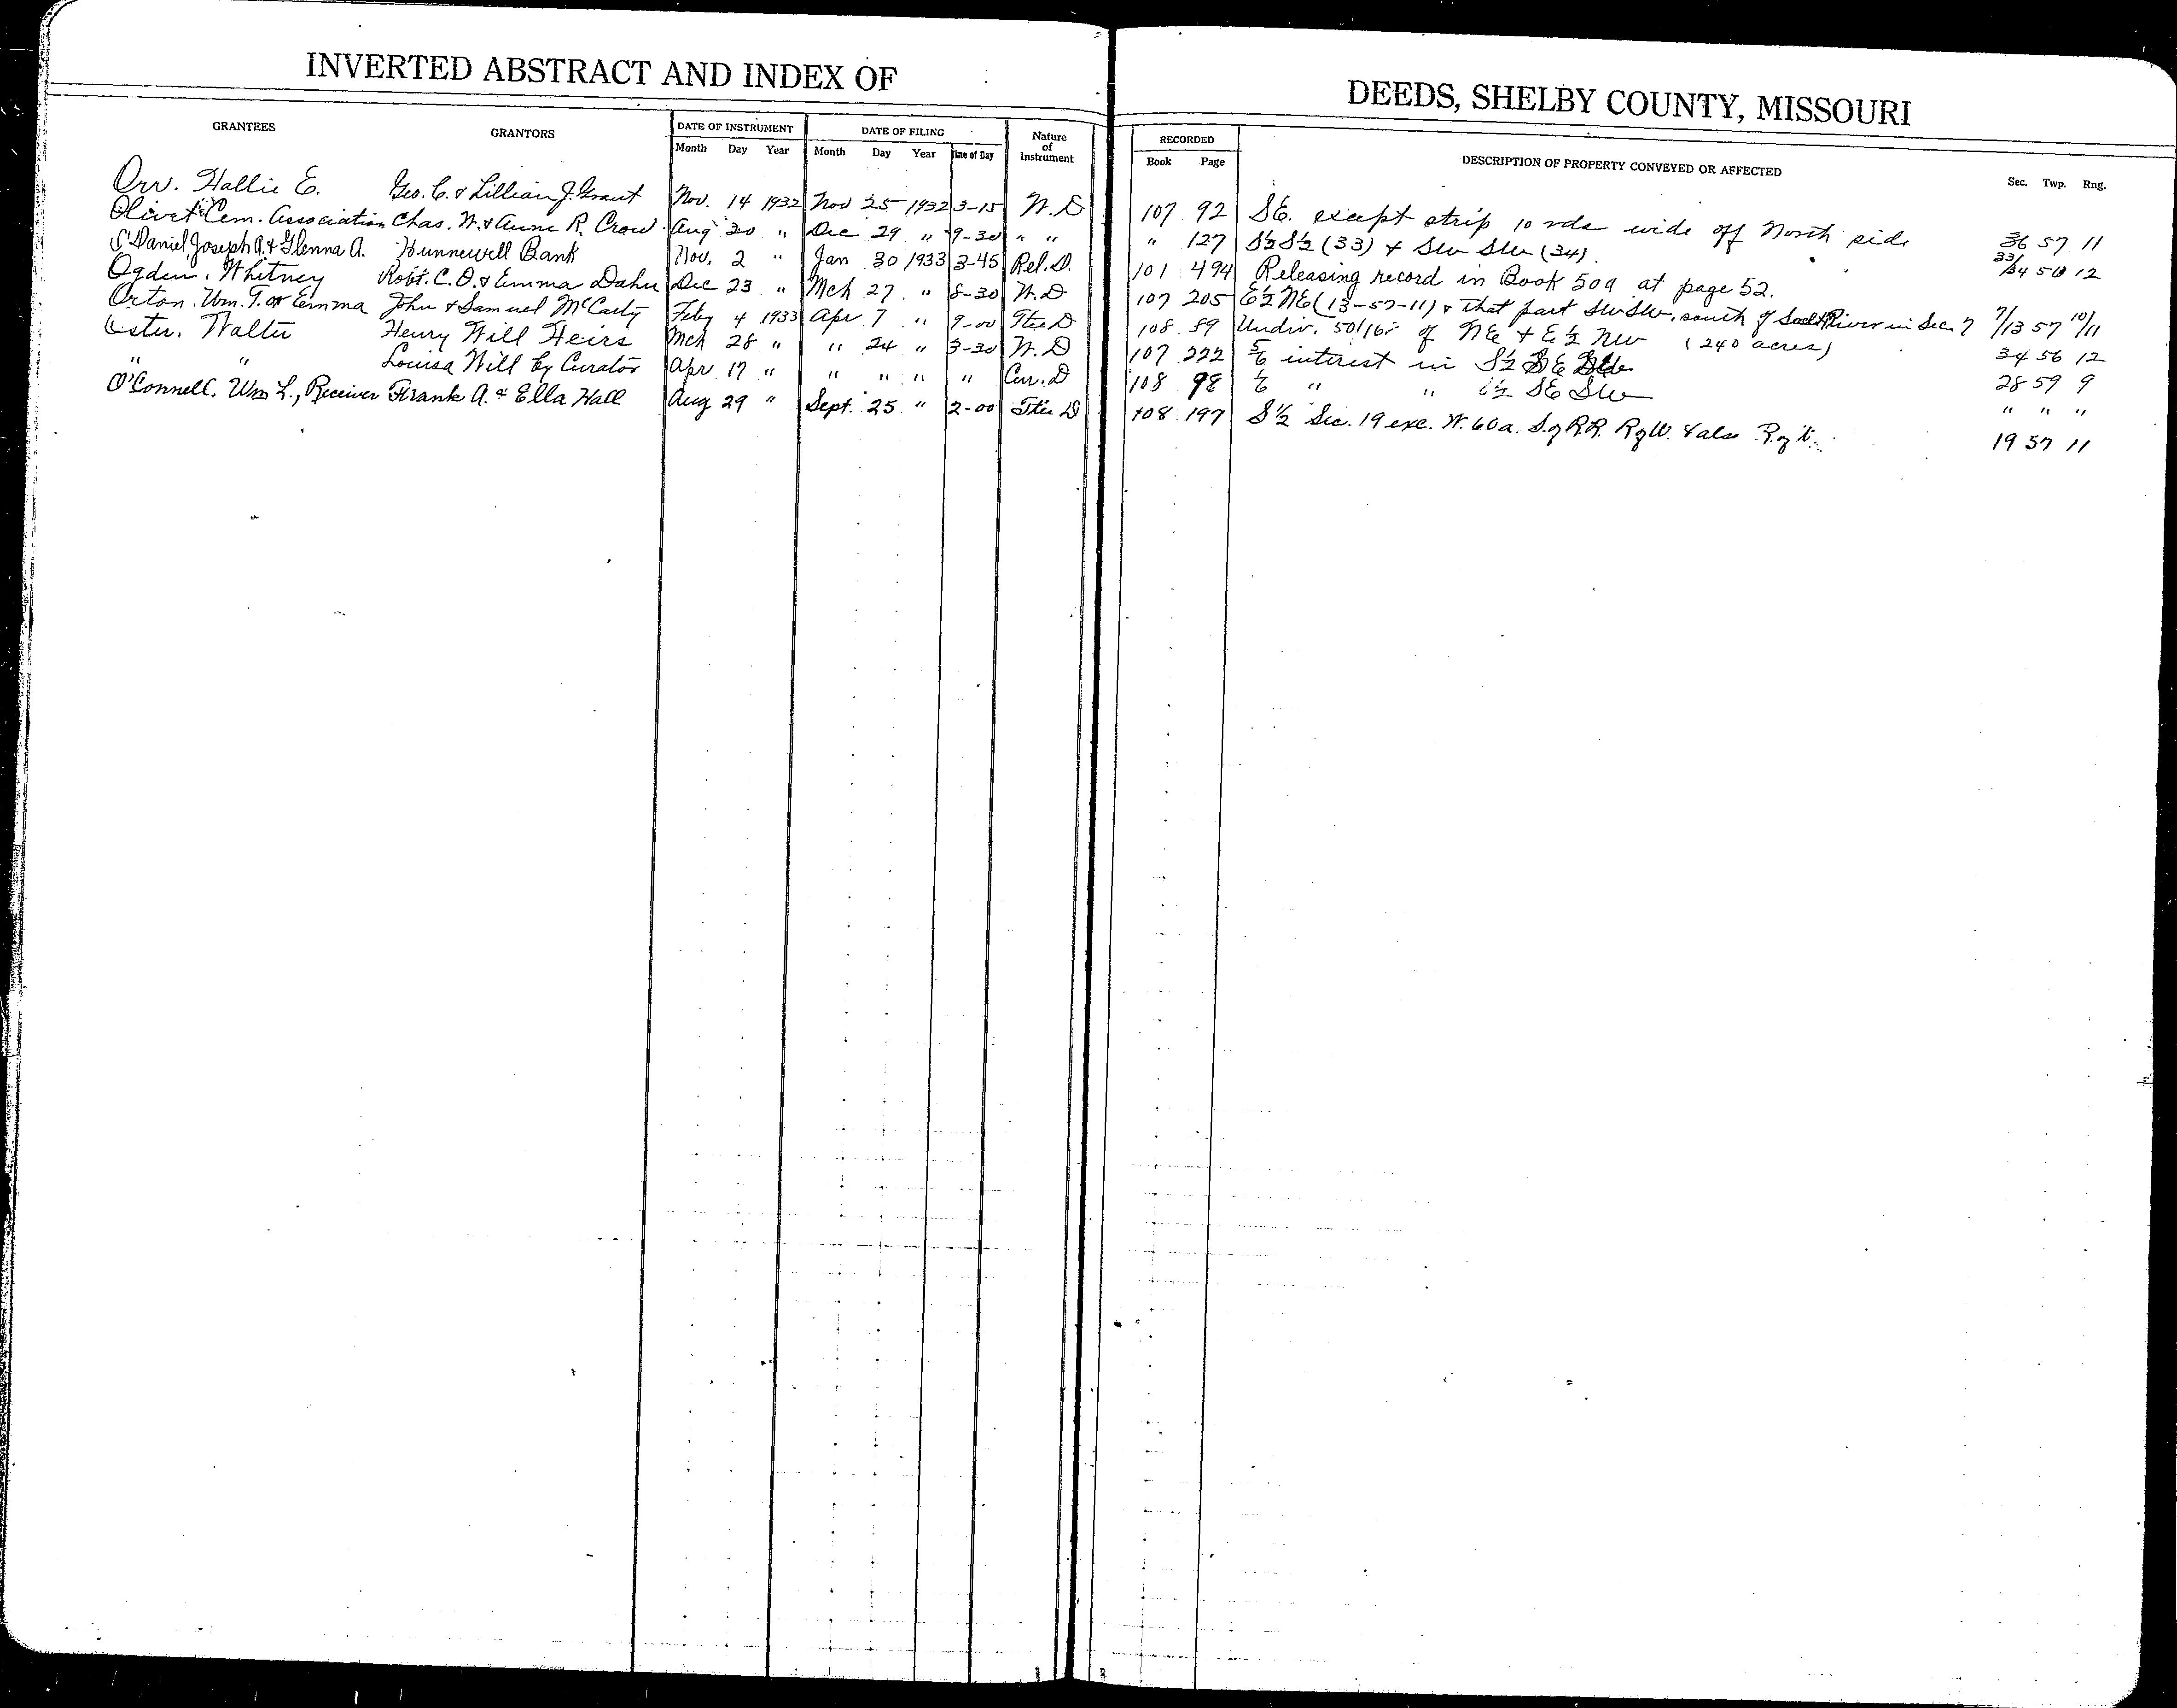 INVERTED ABSTRACT AND INDEX OF
DEEDS, SHELBY COUNTY, MISSOURI
GRANTEES GRANTORS DATE OF INSTRUMENT DATE OF FILING Nature of Instrument RECORDED DESCRIPTION OF PROPERTY CONVEYED OR AFFECTED
Month Day Year Month Day Year Time of Day Book Page Sec. Twp. Rng.
Orr. Hallie E. Geo. C. & Lillian J. Grant Nov. 14 1932 Nov 25 1932 3-15 W. D 107 92 SE. except strip 10 rds wide off North side 36 57 11
Olivet Cem. Association Chas. W. & Anne R. Crow Aug 20 " Dec 29 " 9-30 " " " 127 S½ S½ (33) & SW SW (34). 33/34 12
O'Daniel Joseph A. & Glenna A. Hunnewell Bank Nov. 2 " Jan 30 1933 3-45 Rel. D. 101 494 Releasing record in Book 509 at page 52.
Ogden. Whitney Robt. C. O. & Emma Dahn Dec 23 " Mch 27 " 8-30 W. D 107 205 E½ NE (13-57-11) & that part SW SW, south of River in Sec. 7 7/13 57 10/11
Orton. Wm. T. or Emma John & Samuel McCarty Feby 4 1933 Apr 7 " 9-00 Stee D 108 89 Undiv. of NE & E½ NW (240 acres) 34 56 12
Oster. Walter Henry Will Heirs Mch 28 " " 24 " 3-30 W. D 107 222 5/6 interest in S½ SE SW 28 59 9
" " Louisa Will by Curator Apr 17 " " " " " Cur. D 108 98 1/6 " " S½ SE SW " " "
O'Connell. Wm L., Receiver Frank A. & Ella Hall Aug 29 " Sept. 25 " 2-00 Stee D 108 197 S½ Sec. 19 exc. W. 60a. S. of R.R. R of W. & also R of W. 19 57 11